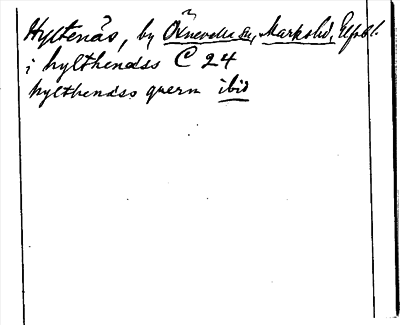 Hyltenäs, by Öxnevalla sn, Marks hd, Elfsbl.
i hylthenæss C 24
hylthenæss qvern ibid